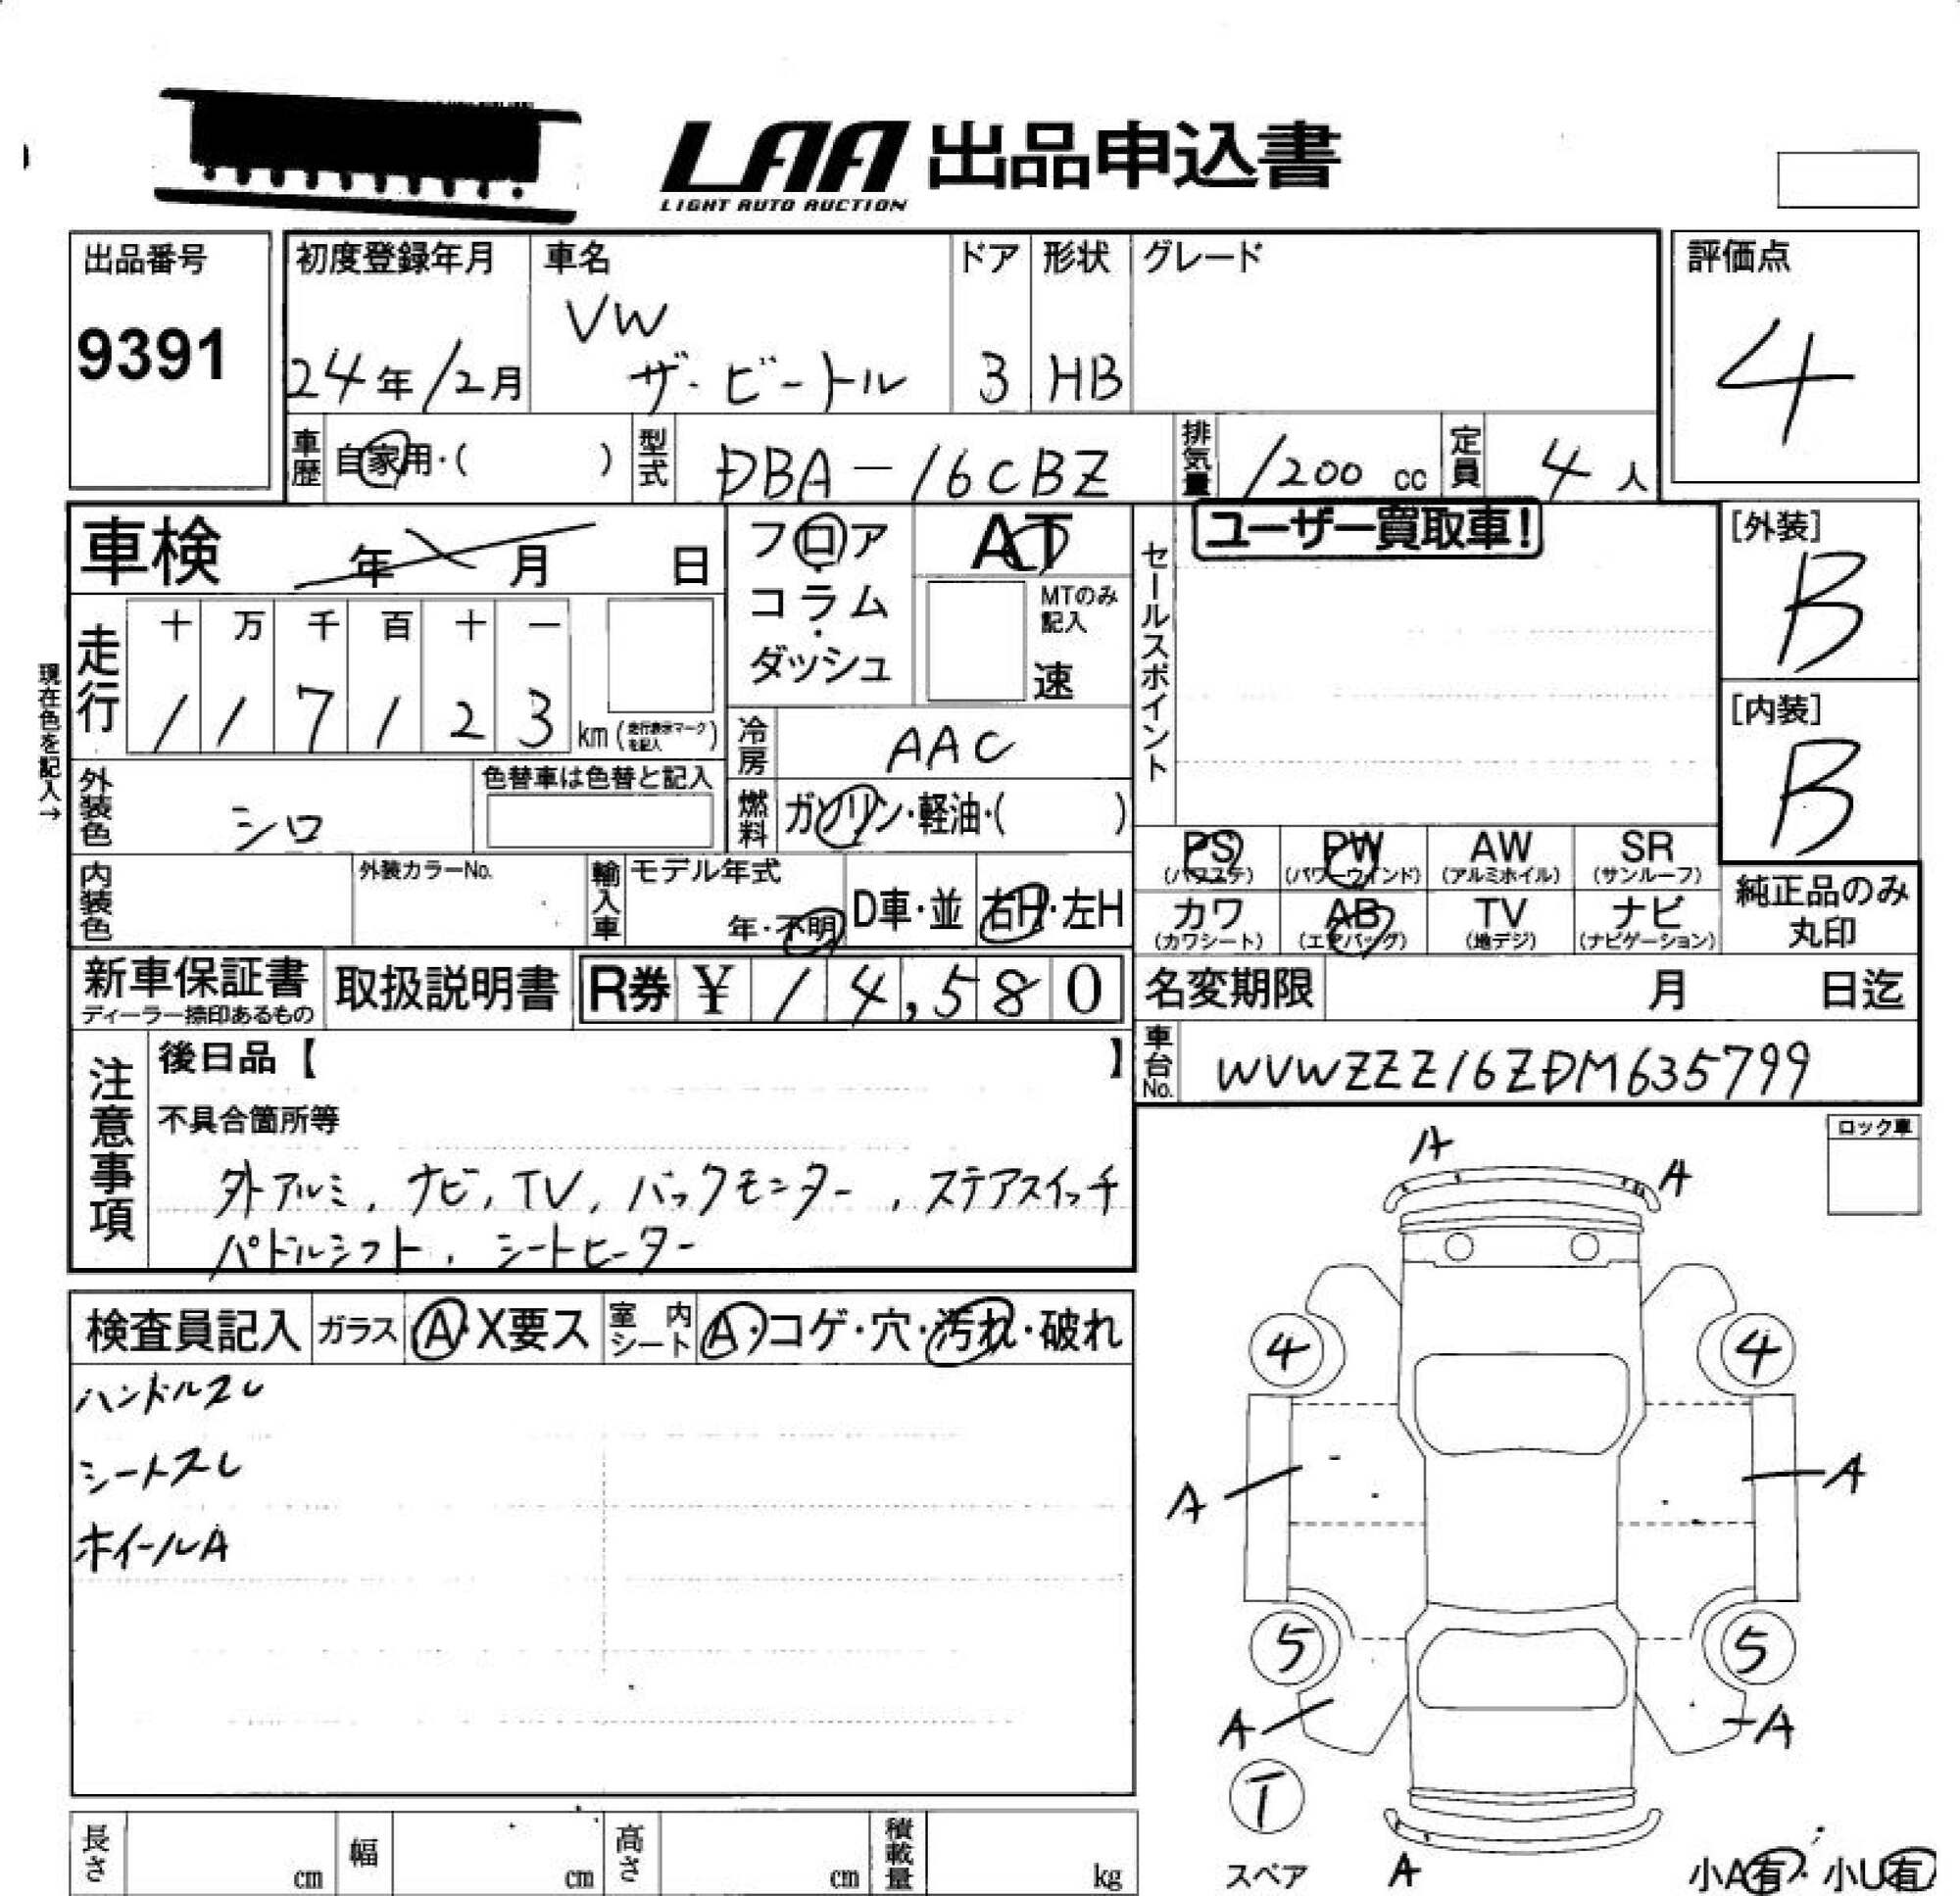 LAA 出品申込書
LIGHT AUTO AUCTION
出品番号
9391
初度登録年月
24年12月
車名
VW
ザ・ビートル
ドア
3
形状
HB
グレード
評価点
4
車歴
自家用・( )
型式
DBA-16CBZ
排気量
1200 cc
定員
4人
車検 年 月 日
フロア・コラム・ダッシュ
AT
MTのみ記入
速
セールスポイント
ユーザー買取車!
[外装]
B
[内装]
B
現在色を記入→
走行
十 万 千 百 十 一
1 1 7 1 2 3 km(走行表示マークを記入)
冷房
AAC
外装色
シロ
色替車は色替と記入
燃料
ガソリン・軽油・( )
PS (パワステ)
PW (パワーウインド)
AW (アルミホイル)
SR (サンルーフ)
カワ (カワシート)
AB (エアバッグ)
TV (地デジ)
ナビ (ナビゲーション)
純正品のみ
丸印
内装色
外装カラーNo.
輸入車
モデル年式
年・不明
D車・並
右H・左H
新車保証書
ディーラー捺印あるもの
取扱説明書
R券 ¥ 14,580
名変期限 月 日迄
車台No.
WVWZZZ16ZDM635799
注意事項
後日品【 】
不具合箇所等
外アルミ, ナビ, TV, バックモニター, ステアスイッチ
パドルシフト, シートヒーター
ロック車
検査員記入
ガラス
A・X要ス
室内シート
A・コゲ・穴・汚れ・破れ
ハンドルスレ
シートスレ
ホイールA
A
A
4
4
A
A
5
5
A
A
T
スペア
A
小A有・小U有
長さ cm
幅 cm
高さ cm
積載量 kg